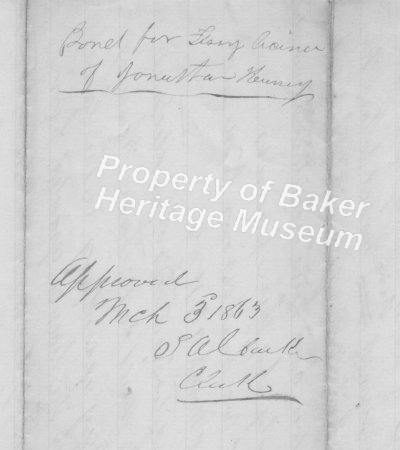 Bond for Ferry License
of Jonathan Keeney
Property of Baker
Heritage Museum
Approved
Mch 3d 1863
S A Clarke
Clerk